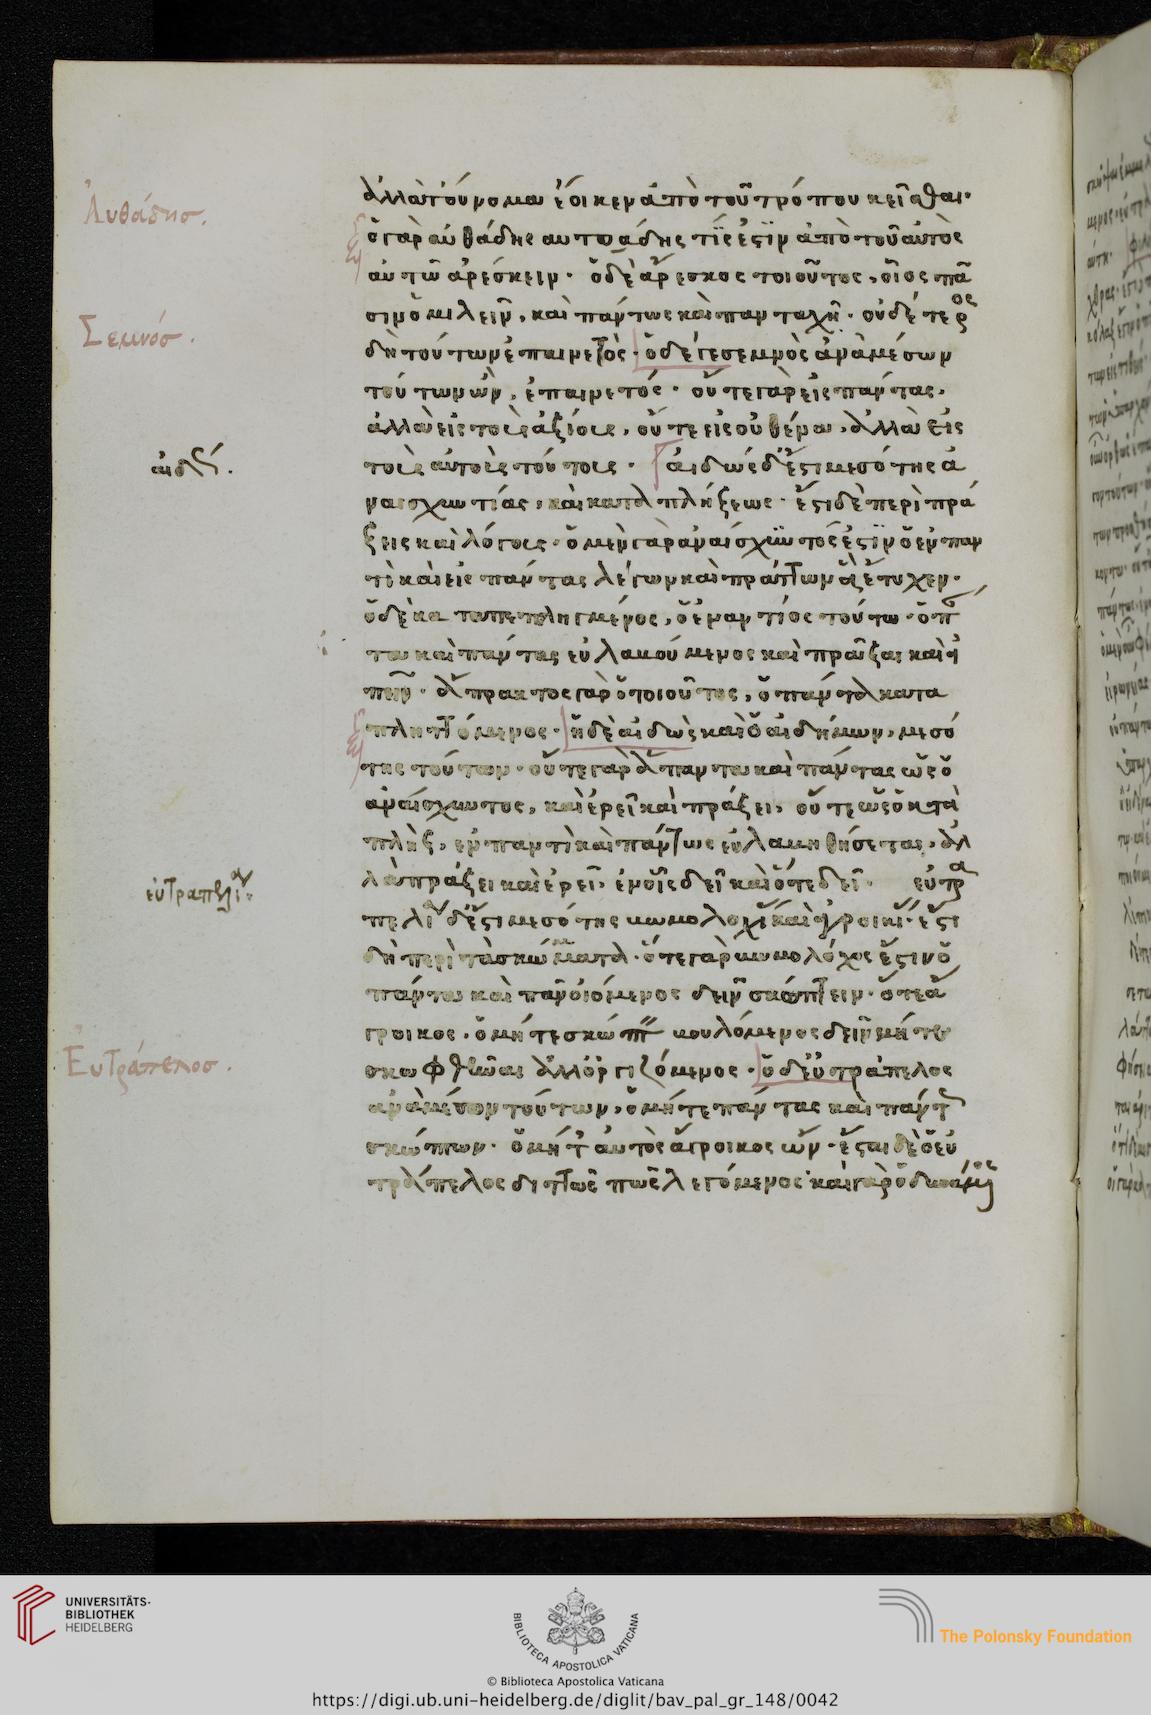 Αὐθάδησ.
Σεμνόσ.
αἰδώς.
εὐτραπελία:
Εὐτράπελοσ.
ἀλλὰ τοὔνομα ἔοικεν ἀπὸ τοῦ τρόπου κεῖσθαι·
ὁ γὰρ αὐθάδης αυτοάδης τίς ἐστὶν ἀπὸ τοῦ αὐτὸς
αὑτῶ ἀρέσκειν· ὁ δὲ ἄρεσκος τοιοῦτος, οἷος πᾶ
σιν ὁμιλεῖν, καὶ πάντως καὶ πανταχῆ· οὐδέτερος
δὴ τούτων ἐπαινετός· ὁ δέ γε σεμνὸς ἀνὰ μέσων
τούτων ὢν, ἐπαινετός· οὔτε γὰρ εἰς πάντας,
ἀλλὰ εἰς τοὺς ἀξίους, οὔτε εἰς οὐθένα, ἀλλὰ εἰς
τοὺς αὐτοὺς τούτους· αἰδώς δ' ἔστι μεσότης ἀ
ναισχυντίας, καὶ καταπλήξεως· ἔστι δὲ περὶ πρά
ξεις καὶ λόγους· ὁ μὲν γὰρ ἀναίσχυντός ἐστιν ὁ ἐν παν
τὶ καὶ εἰς πάντας λέγων καὶ πράττων ἃ ἔτυχεν·
ὁ δὲ καταπεπληγμένος, ὁ ἐναντίος τούτω· ὁ πάν
τα καὶ πάντας εὐλαβούμενος καὶ πρᾶξαι καὶ εἰ
πεῖν· ἄπρακτος γὰρ ὁ τοιοῦτος, ὁ πάντα κατα
πληττόμενος· ἡ δὲ αἰδὼς καὶ ὁ αἰδήμων, μεσό
της τούτων· οὔτε γὰρ ἅπαντα καὶ πάντας ὡς ὁ
ἀναίσχυντος, καὶ ἐρεῖ καὶ πράξει, οὔτε ὡς ὁ κατὰ
πλὴξ, ἐν παντὶ καὶ πάντως εὐλαβηθήσεται, ἀλ
λὰ πράξει καὶ ἐρεῖ, ἐν οἷς δεῖ καὶ ὅτε δεῖ· εὐτρα
πελία δ' ἔστι μεσότης βωμολοχίας καὶ ἀγροικίας· ἔστι
δὴ περὶ τὰ σκώμματα· ὅ τε γὰρ βωμολόχος ἔστιν ὁ
πάντα καὶ πᾶν οἰόμενος δεῖν σκώπτειν· ὅ τε ἄ
γροικος, ὁ μήτε σκώπτειν βουλόμενος δεῖν μήτε
σκωφθῆναι ἀλλ' ὀργιζόμενος· ὁ δ' εὐτράπελος
ἀνὰ μέσον τούτων, ὁ μήτε πάντας καὶ πάντως
σκώπτων· ὁ μήτ' αὐτὸς ἄγροικος ὤν· ἔσται δὲ ὁ εὐ
τράπελος διττῶς πως λεγόμενος· καὶ γὰρ ὁ δυνάμενος
UNIVERSITÄTS-
BIBLIOTHEK
HEIDELBERG
BIBLIOTECA APOSTOLICA VATICANA
The Polonsky Foundation
© Biblioteca Apostolica Vaticana
https://digi.ub.uni-heidelberg.de/diglit/bav_pal_gr_148/0042